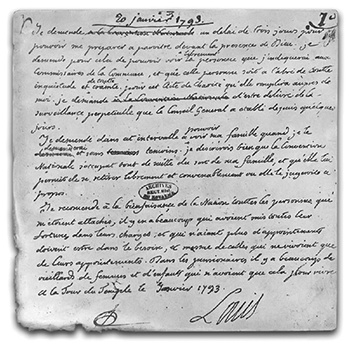 20 janvier 1793.
Je demande un delai de trois jours pour
pouvoir me preparer a paroitre devant la presence de Dieu; je
demande pour cela de pouvoir voir librement la personne que j'indiquerai aux
Commissaires de la Commune, et que cette personne soit a l'abri de toute
inquietude et de toute crainte, pour cet acte de charité qu'elle remplira aupres de
moi. je demande d'etre delivré de la
surveillance perpetuelle que le Conseil General a etablie depuis quelques
jours.
Je demande dans cet intervalle a pouvoir voir ma famille quand je le
demanderai et sans temoins; je desirerois bien que la Convention
Nationale s'occupat tout de suite du sort de ma famille, et qu'elle lui
permit de se retirer librement et convenablement ou elle le jugeroit a
propos.
ARCHIVES
DU ROYAUME
Je recomende a la bienfaisance de la Nation toutes les personnes qui
m'etoient attachées, il y en a beaucoup qui avoient mis toutes leur
fortunes dans leurs charges, et qui n'aiant plus d'appointements
doivent estre dans le besoin, et mesme de celles qui ne vivoient que
de leurs appointements. Dans les pensionaires il y a beaucoup de
vieillards de femmes et d'enfants qui n'avoient que cela pour vivre
a la Tour du Temple le 20 Janvier 1793.
Louis